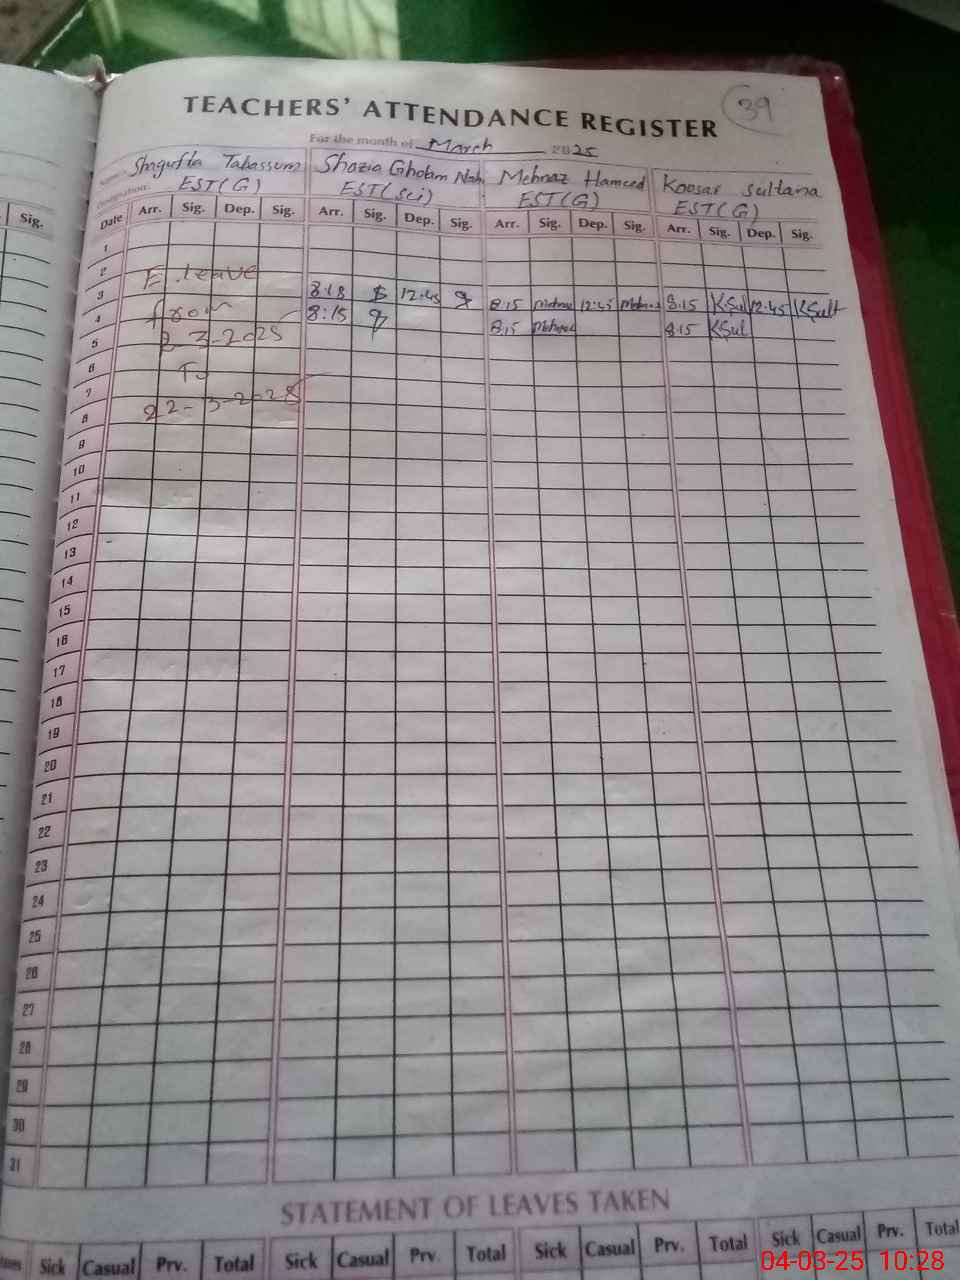 39
TEACHERS' ATTENDANCE REGISTER
For the month of March 2025
Name: Shagufta Tabassum Shazia Gholam Nabi Mehnaz Hameed Kousar Sultana
Designation: EST(G) EST(Sci) EST(G) EST(G)
Sig. Date Arr. Sig. Dep. Sig. Arr. Sig. Dep. Sig. Arr. Sig. Dep. Sig. Arr. Sig. Dep. Sig.
1
2
E. Leave
3 8:18 12:45 8:15 12:45 8:15 K.Sul 12:45 KSult
from
4 8:15 8:15 8:15 KSul
2-3-2025
5
6
To
7
22-3-2025
8
9
10
11
12
13
14
15
16
17
18
19
20
21
22
23
24
25
26
27
28
29
30
31
STATEMENT OF LEAVES TAKEN
Sick Casual Prv. Total Sick Casual Prv. Total Sick Casual Prv. Total Sick Casual Prv. Total
04-03-25 10:28